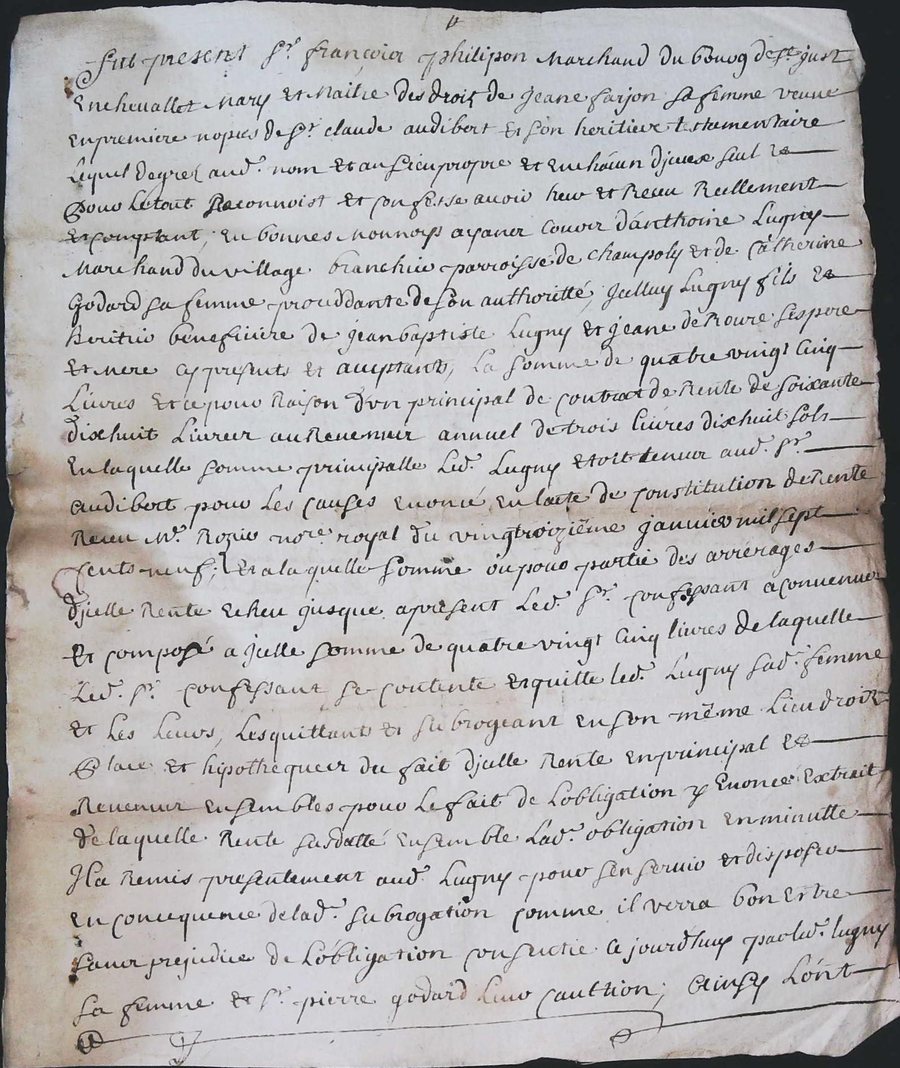 fut present Sr. françois philipon Marchand du bourg de St. just
En chevallet Mary Et Maitre des droits de Jeane farjon sa femme veuve
En premiere nopces de Sr. claude audibert Et son heritier testamentaire
Lequel de gre audt. nom Et au sien propre et En chacun d'jceux seul Et
pour Le tout Reconnoist Et confesse avoir heu Et Receu Reellement
Et comptant, En bonnes Monnoys ayant Cours d'anthoine Lugny
Marchand du village parroisse de champoly Et de Catherine
Godard sa femme de son authoritté, Lugny fils Et
heritier beneficiere de jean baptiste Lugny Et jeane de Roure ses pere
Et mere cy presents Et acceptants, La somme de quatre vingt Cinq
Livres Et ce pour Raison d'un principal de contrat de Rente de soixante
dixhuit Livres au Revenu annuel de trois Livres dixhuit sols
En laquelle somme principalle Ledt. Lugny Etoit tenu audt. Sr.
audibert pour Les causes Enoncé En l'acte de constitution de Rente
Receu Me. Rozier nore. royal du vingtroizième janvier mil sept
cents neuf, Et a laquelle somme ou pour partie des arrérages
d'jcelle Rente Echeu jusque a present Ledt. Sr. confessant a convenu
Et composé a jcelle somme de quatre vingt Cinq livres de laquelle
Ledt. Sr. confessant se contente Et quitte ledt. Lugny sadt. femme
Et Les Leurs, Les quittants Et subrogeant En son même Lieu droit
place Et hipotheque du fait d'jcelle Rente En principal Et
Revenu Ensembles pour Le fait de L'obligation y Enoncé Extrait
de laquelle Rente susdatté Ensemble Ladt. obligation En minutte
Jl a Remis presentement audt. Lugny pour s'en servir Et disposer
En concequence de ladt. subrogation comme il verra bon Estre
sans prejudice de L'obligation consentie ce jourd'huy par ledt. lugny
sa femme Et Sr. pierre godard Leur cauthion; Ainsy L'ont